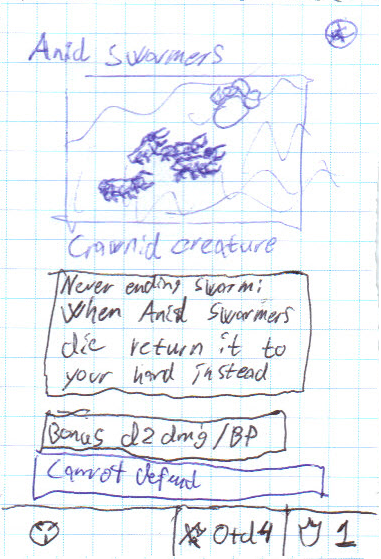 Anid Swarmers
Crawnid creature
Never ending Swarm:
When Anid Swarmers
die return it to
your hand instead
Bonus d2 dmg/BP
Cannot defend
0+d4
1